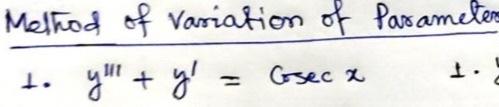 Method of Variation of Parameter
1. y''' + y' = Cosec x 1.